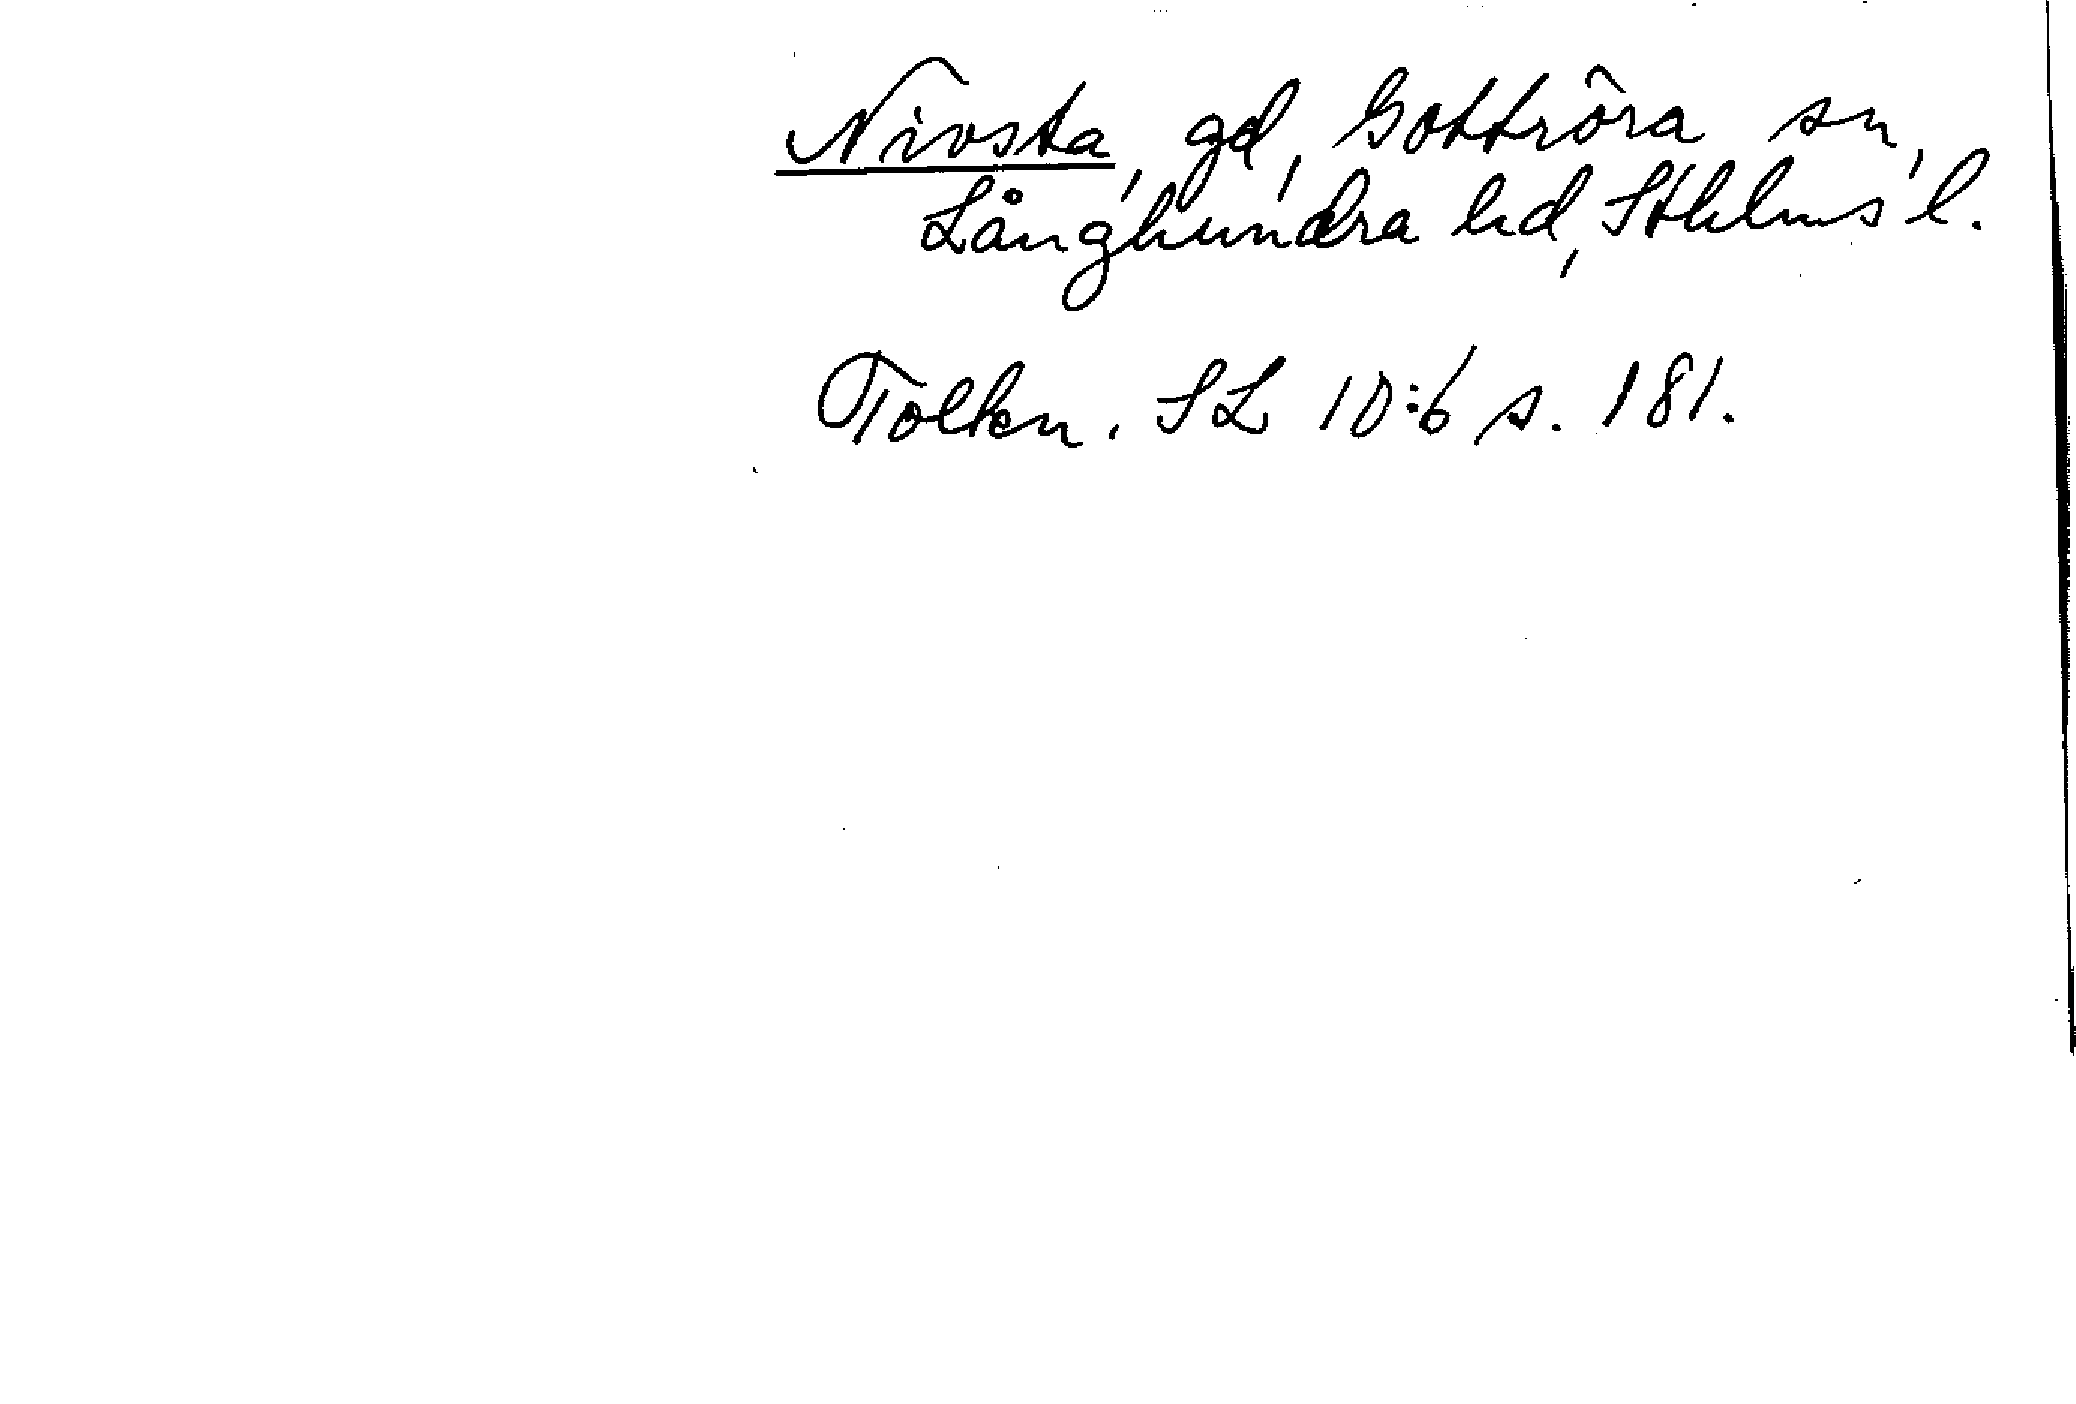 Nivsta, gd, Gottröra sn,
Långhundra hd, Sthlms l.
Tolkn. SL 10:6 s. 181.